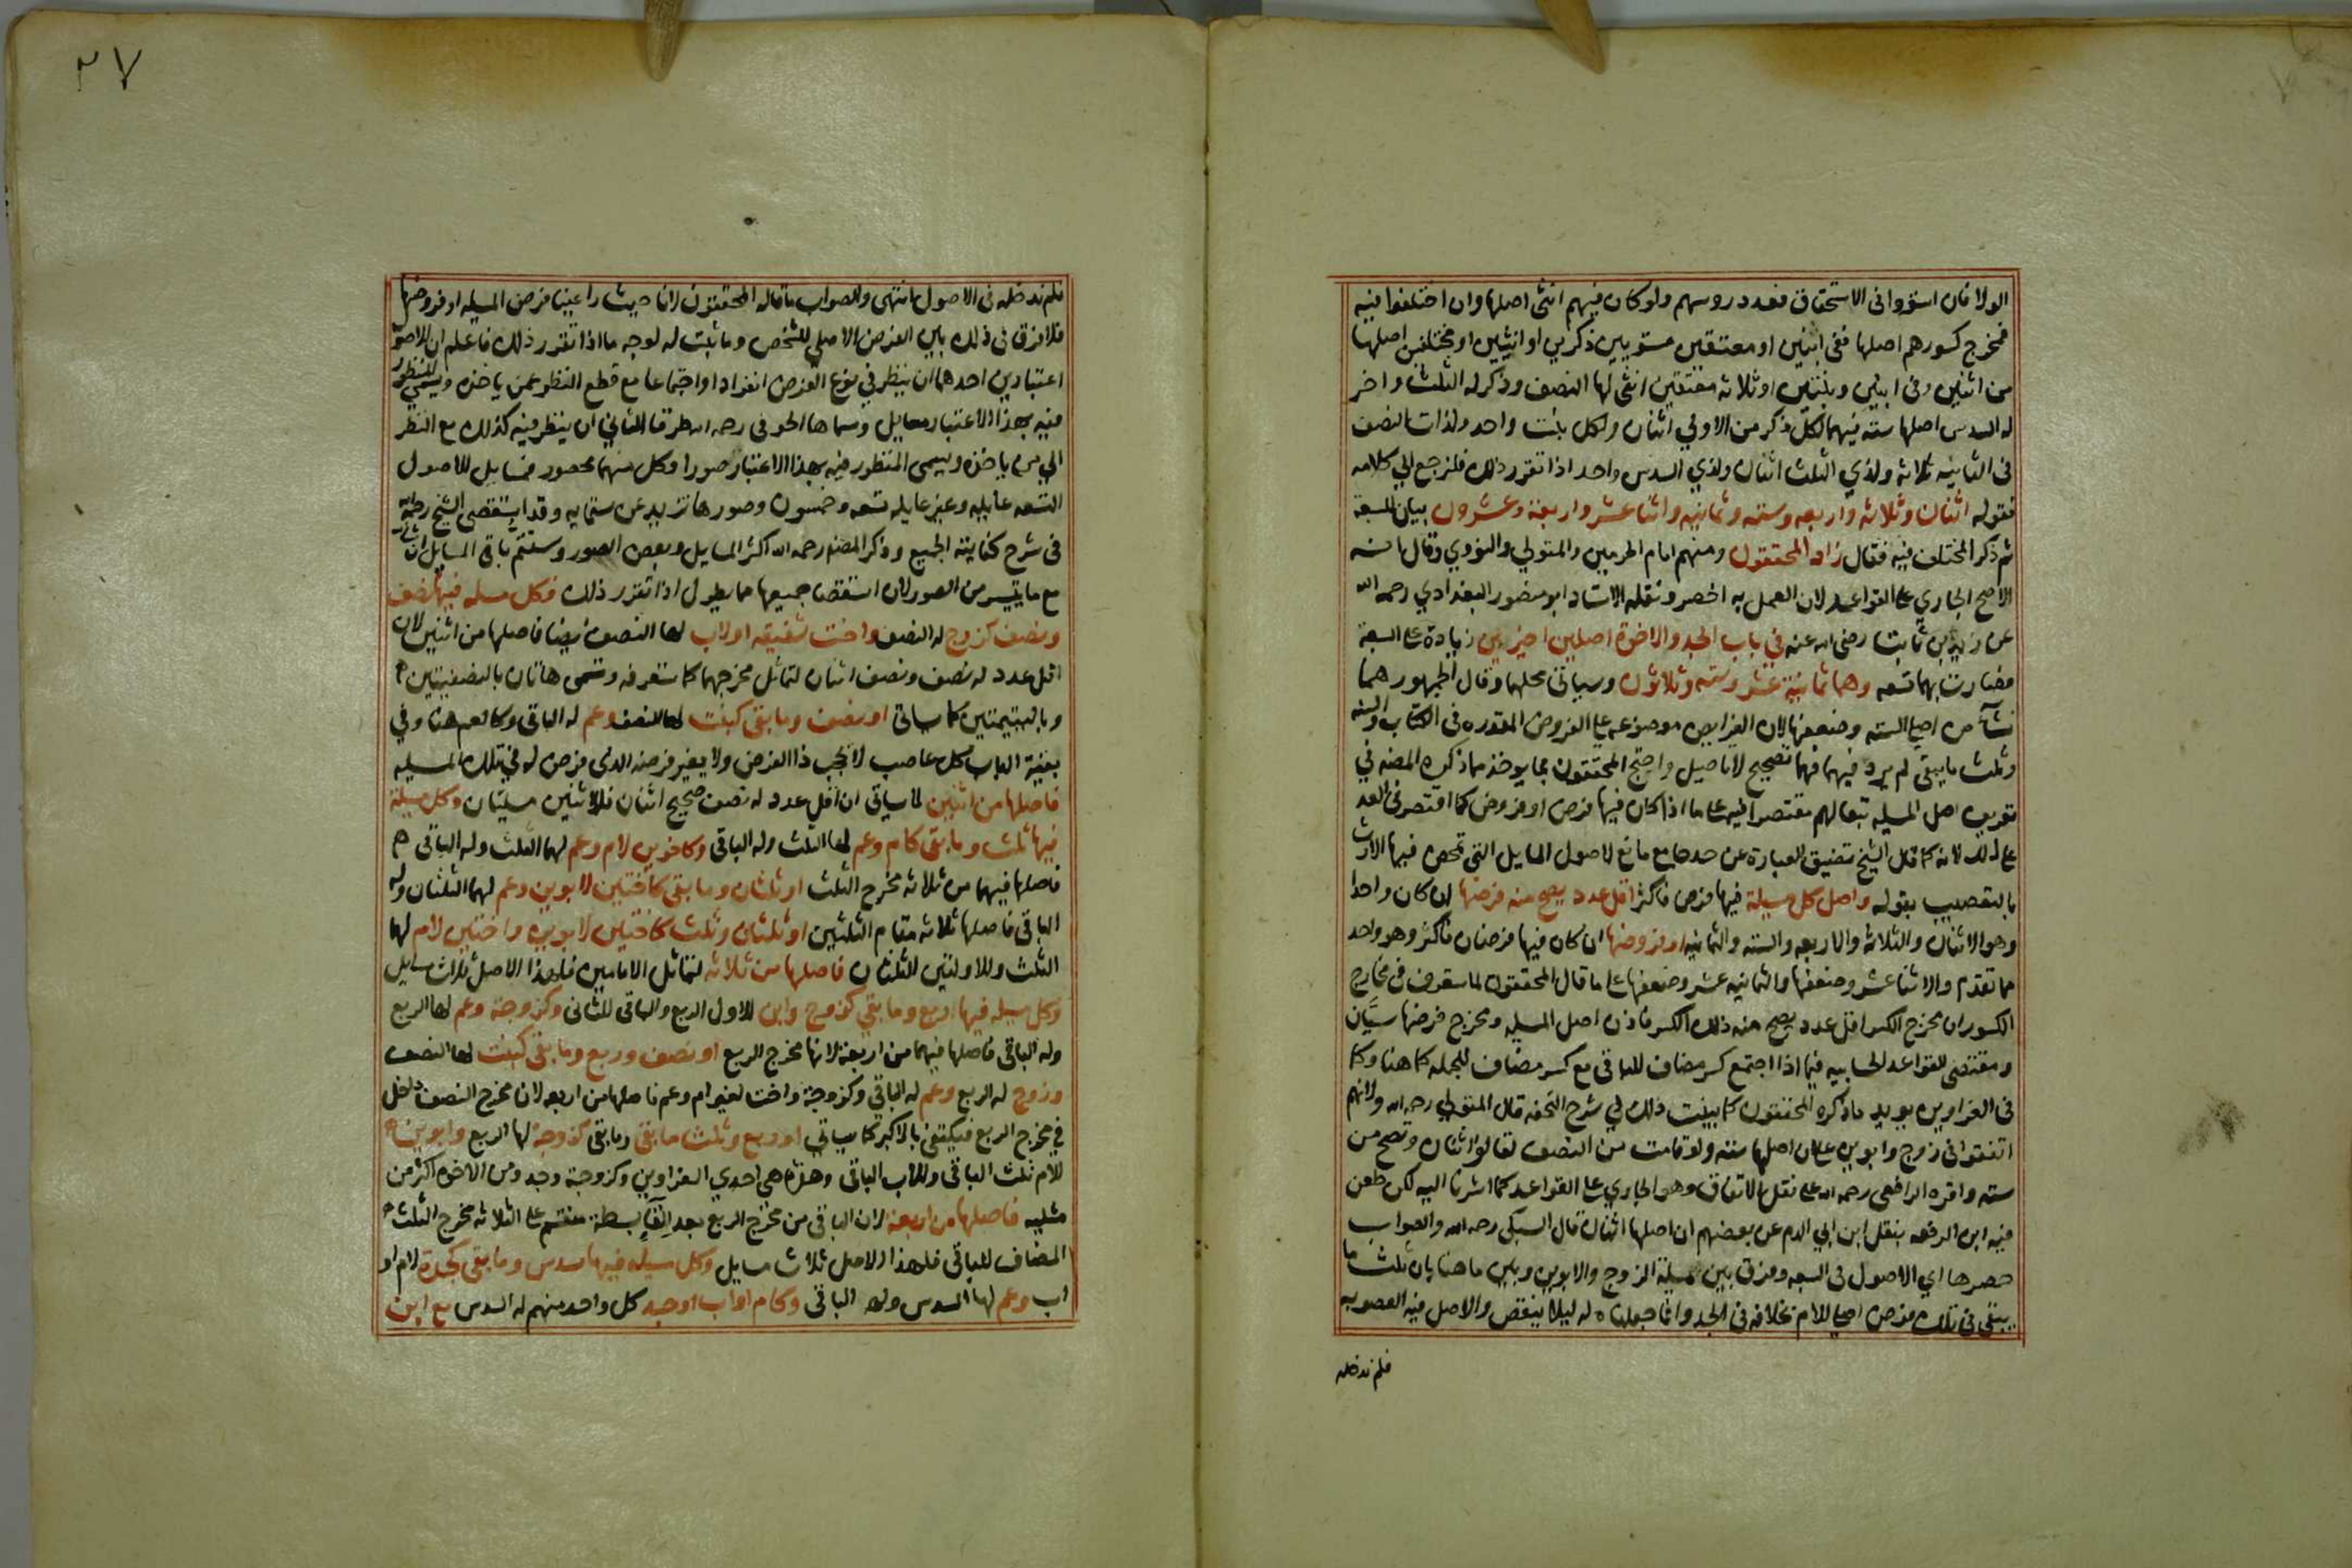 الولا فان استووا فى الاستحقاق فعدد روسهم ولو كان فيهم انثى اصلها وان اختلفوا فيه
فمخرج كسورهم اصلها ففى ابنين او معتقين مستويين ذكرين او انثيين او مختلفين اصلها
من اثنين وفى ابنين وبنتين او ثلاثه معتقين انثى لها النصف وذكر له الثلث واخر
له السدس اصلها سته فيهما لكل ذكر من الاولي اثنان ولكل بنت واحد ولذات النصف
فى الثانيه ثلاثه ولذي الثلث اثنان ولذي السدس واحد اذا تقرر ذلك فلنرجع الي كلامه
فقوله اثنان وثلاثه واربعه وسته وثمانيه واثنا عشر واربعة وعشرون بيان للسبعة
ثم ذكر المختلف فيه فقال زاد المحققون ومنهم امام الحرمين والمتولي والنووي وقال انه
الاصح الجاري على القواعد لان العمل به اخصر ونقله الاستاد ابو منصور البغدادي رحمه الله
عن زيد بن ثابت رضى الله عنه في باب الجد والاخوة اصلين اخيرين زيادة على السبعة
فصارت بهما تسعه وهما ثمانية عشر وسته وثلاثون وسياتى محلهما وقال الجمهور هما
نشآ من اصلي السته وضعفها لان الفرايض موضوعه على الفروض المقدره فى الكتاب والسنه
وثلث ما يبقى لم يرد فيهما فهما تصحيح لا تاصيل واحتج المحققون بما يوخذ مما ذكره المصنف في
تعريف اصل المسيله تبعا لهم مقتصرا فيه على ما اذا كان فيها فرض او فروض كما اقتصر فى العد
على ذلك لانه كما قال الشيخ تضيق العبارة عن حد جامع مانع لاصول المسايل التي تمحض فيها الارث
بالتعصيب بقوله واصل كل مسيلة فيها فرض فاكثر اقل عدد يصح منه فرضها ان كان واحدا
وهو الاثنان والثلاثه والاربعه والسته والثمانيه او فروضها ان كان فيها فرضان فاكثر وهو واحد
مما تقدم والاثنا عشر وضعفها والثمانيه عشر وضعفها على ما قال المحققون لما ستعرف فى مخارج
الكسور ان مخرج الكسر اقل عدد يصح منه ذلك الكسر فاذن اصل المسيله ومخرج فرضها سيَّان
ومقتضى القواعد الحسابيه فيما اذا اجتمع كسر مضاف للباقى مع كسر مضاف للجمله كما هنا وكما
فى الغراوين يويد ما ذكره المحققون كما بينت ذلك في شرح التحفه قال المتولي رحمه الله ولانهم
اتفقوا فى زوج وابوين على ان اصلها سته ولو قامت من النصف لقالوا اثنان وتصح من
سته واقره الرافعى رحمه الله على نقل الاتفاق وهو الجاري على القواعد كما اشرنا اليه لكن طعن
فيه ابن الرفعه بنقل ابن ابي الدم عن بعضهم ان اصلها اثنان قال السبكى رحمه الله والصواب
حصرها اي الاصول فى السبعه وفرق بين مسيلة الزوج والابوين وبين ما هنا بان ثلث ما
يبقى فى تلك فرض اصلي للام بخلافه فى الجد وانما جعلناه له ليلا ينقص والاصل فيه العصوبه
فلم ندخله
٢٧
فلم ندخله فى الاصول انتهى والصواب ما قاله المحققون لانا حيث راعينا فرض المسيله او فروضها
فلا فرق فى ذلك بين الفرض الاصلي للشخص وما ثبت له لوجه ما اذا تقرر ذلك فاعلم ان للاصول
اعتبارين احدهما ان ينظر في نوع الفرض انفرادا واجتماعا مع قطع النظر عمن ياخذه ويسمي المنظور
فيه بهذا الاعتبار مسايل وسماها الحوفى رحمه الله طرقا الثاني ان ينظر فيه كذلك مع النظر
الي من ياخذه ويسمى المنظور فيه بهذا الاعتبار صورا وكل منهما محصور فمسايل الاصول
التسعه عايله وغير عايله تسعه وخمسون وصورها تزيد عن ستمايه وقد استقصى الشيخ رحمه الله
فى شرح كفايته الجميع وذكر المصنف رحمه الله اكثر المسايل وبعض الصور وسنتمّ باقى المسايل ان شا الله
مع ما يتيسر من الصور لان استقصا جميعها مما يطول اذا تقرر ذلك فكل مسله فيها نصف
ونصف كزوج له النصف واخت شقيقه او لاب لها النصف ايضا فاصلها من اثنين لان
اقل عدد له نصف ونصف اثنان لتماثل مخرجهما كما ستعرفه وتسمى هاتان بالنصفيتين
وباليتيمتين كما سياتى او نصف وما بقى كبنت لها النصف وعم له الباقى وكالعم هنا وفي
بقية الباب كل عاصب لا يحجب ذا الفرض ولا يغير فرضه الذى فرض له في تلك المسيله
فاصلها من اثنين لما سياتى ان اقل عدد له نصف صحيح اثنان فللاثنين مسيلتان وكل مسيلة
فيها ثلث وما بقى كام وعم لها الثلث وله الباقى وكاخوين لام وعم لهما الثلث وله الباقى
فاصلها فيهما من ثلاثه مخرج الثلث او ثلثان وما بقى كاختين لابوين وعم لهما الثلثان وله
الباقى فاصلها ثلاثه مقام الثلثين او ثلثان وثلث كاختين لابوين واختين لام لهما
الثلث وللاولتين الثلثان فاصلها من ثلاثه لتماثل الامامين فلهذا الاصل ثلاث مسايل
وكل مسيله فيها ربع وما بقي كزوج وابن للاول الربع والباقى للثانى وكزوجة وعم لها الربع
وله الباقى فاصلها فيهما من اربعة لانها مخرج الربع او نصف وربع وما بقى كبنت لها النصف
وزوج له الربع وعم له الباقي وكزوجة واخت لغير ام وعم فاصلها من اربعه لان مخرج النصف داخل
في مخرج الربع فيكتفى بالاكبر كما سياتي او ربع وثلث ما بقى وما بقى كزوجة لها الربع وابوين
للام ثلث الباقى وللاب الباقى وهذه هى احدي الغراوين وكزوجة وجد ومن الاخوه اكثر من
مثليه فاصلها من اربعة لان الباقى من مخرج الربع بعد القا بسطه منقسم على الثلاثه مخرج الثلث
المضاف للباقى فلهذا الاصل ثلاث مسايل وكل مسيله فيها سدس وما بقى كجدة لام او
اب وعم لها السدس وله الباقى وكام او اب او جد كل واحد منهم له السدس مع ابن